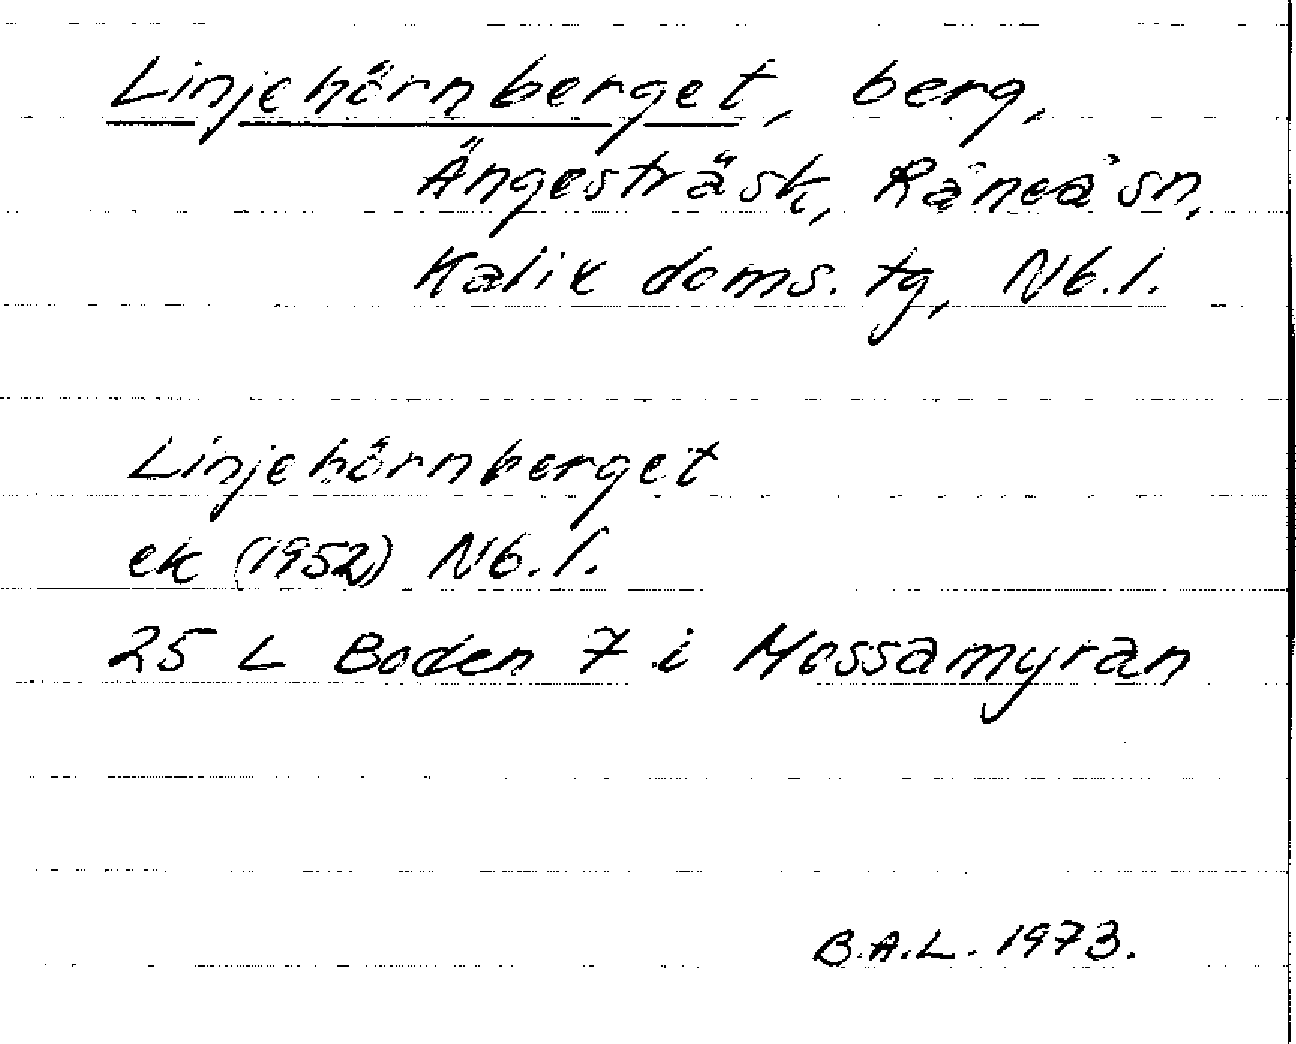 Linjehörnberget, berg,
Ängesträsk, Råneå sn,
Kalix doms. tg, Nb.l.
Linjehörnberget
ek (1952) Nb.l.
25 L Boden 7 i Mossamyran
B.A.L. 1973.